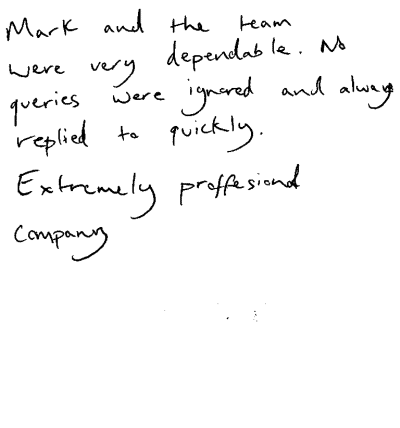 Mark and the team
were very dependable. No
queries were ignored and always
replied to quickly.
Extremely proffesional
company